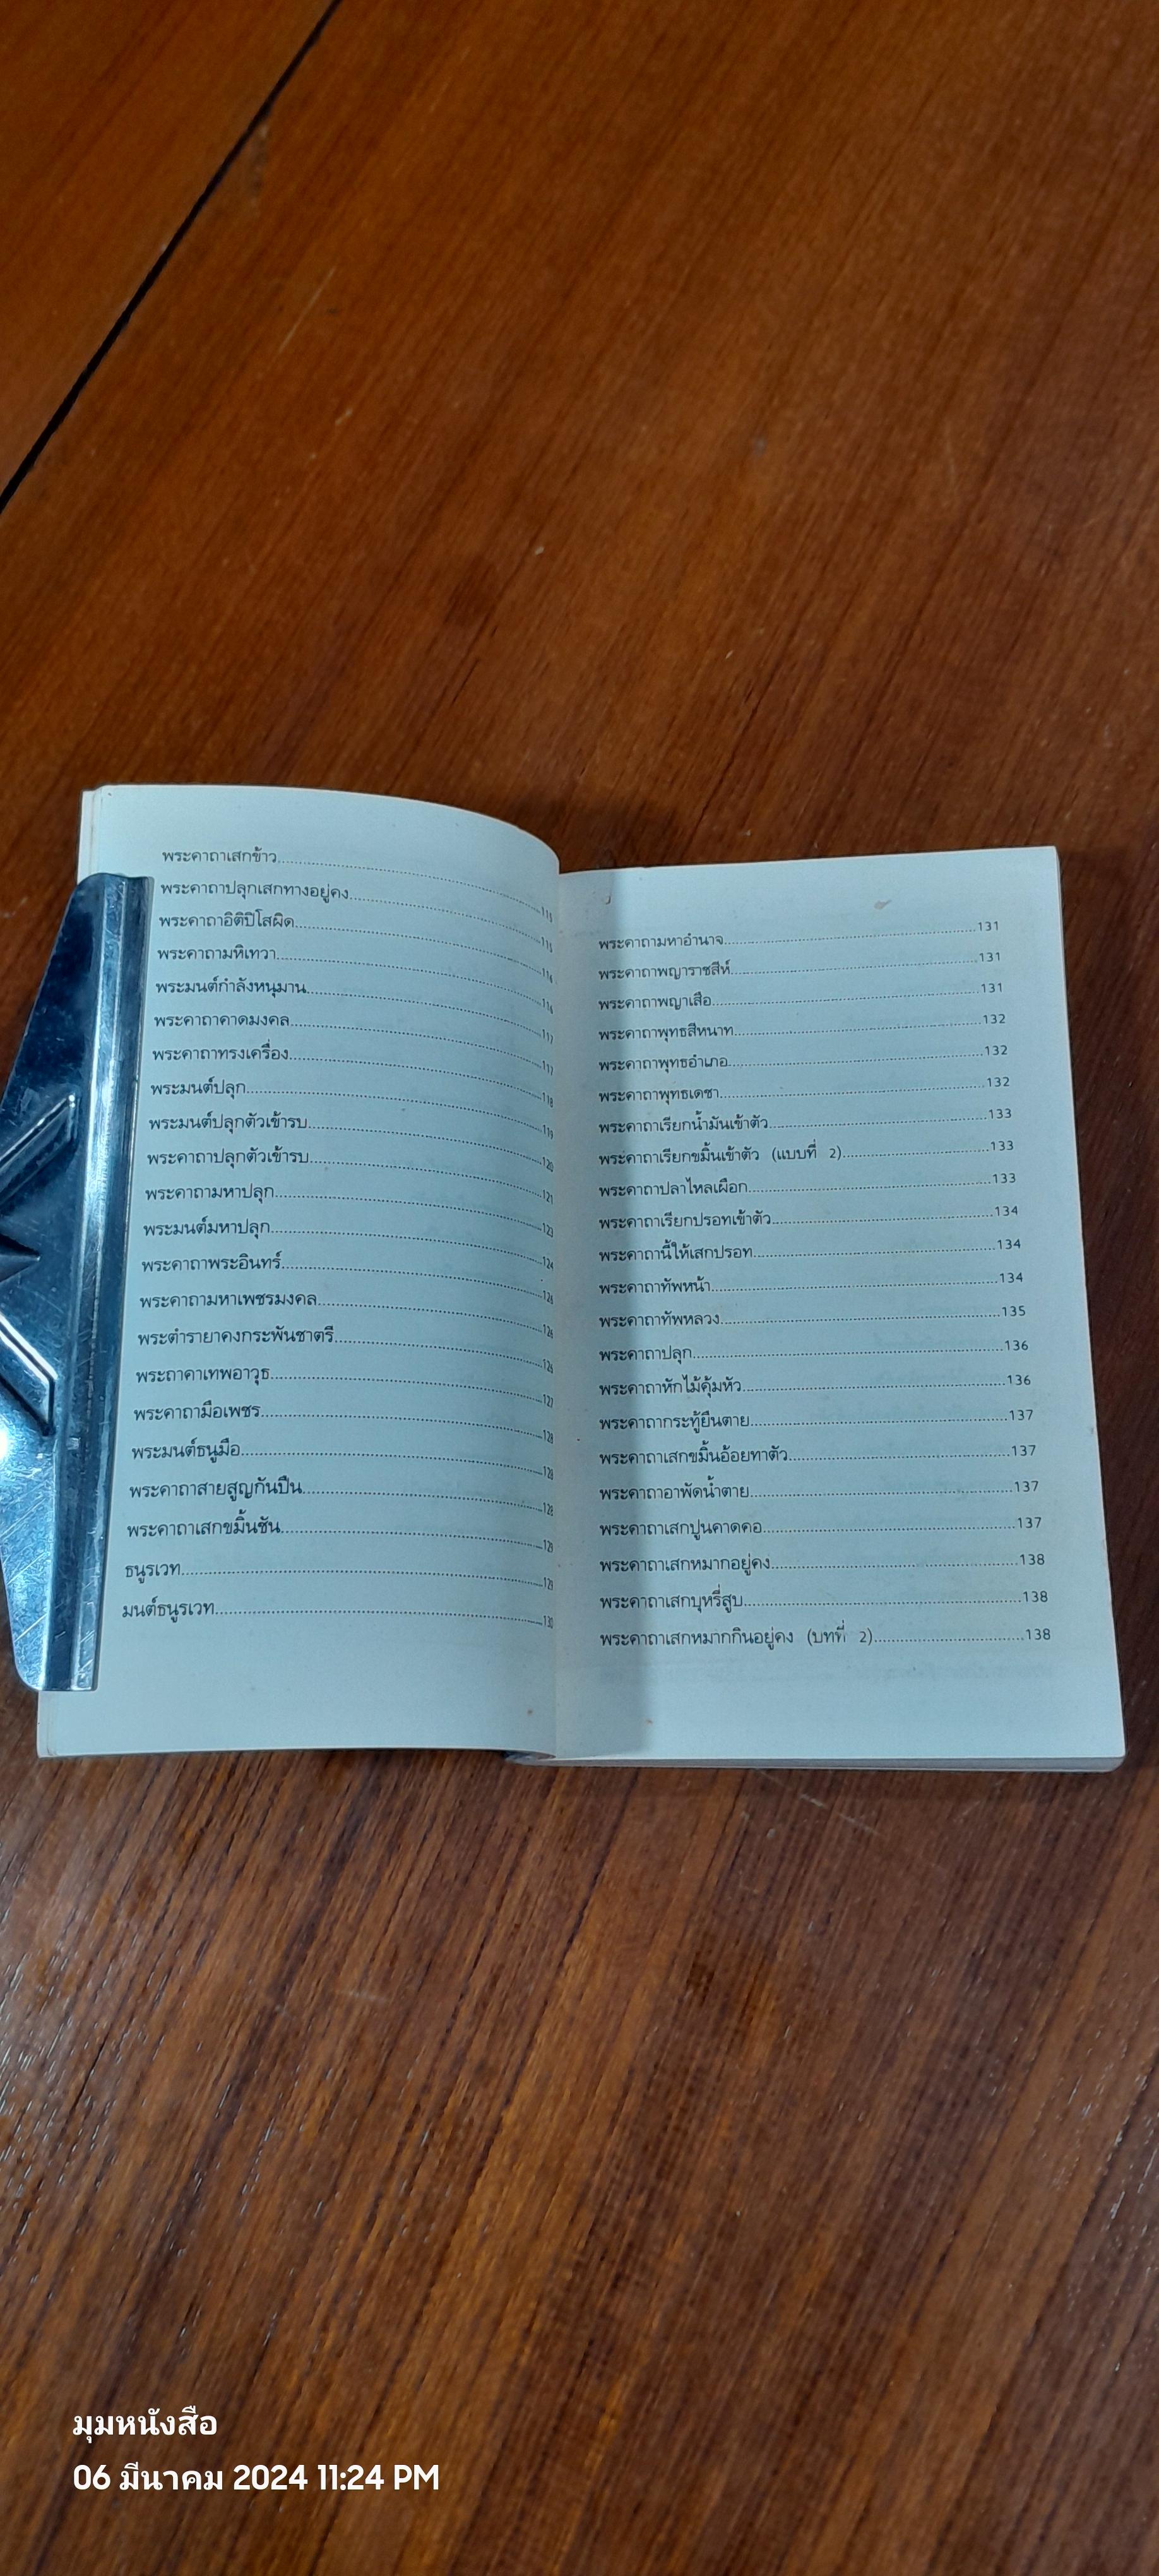 พระคาถาเสกข้าว....................115
พระคาถาปลุกเสกทางอยู่คง....................115
พระคาถาอิติปิโสผิด....................116
พระคาถามหิเทวา....................116
พระมนต์กำลังหนุมาน....................117
พระคาถาคาดมงคล....................117
พระคาถาทรงเครื่อง....................118
พระมนต์ปลุก....................119
พระมนต์ปลุกตัวเข้ารบ....................120
พระคาถาปลุกตัวเข้ารบ....................121
พระคาถามหาปลุก....................123
พระมนต์มหาปลุก....................124
พระคาถาพระอินทร์....................
พระคาถามหาเพชรมงคล....................
พระตำรายาคงกระพันชาตรี....................
พระถาคาเทพอาวุธ....................127
พระคาถามือเพชร....................128
พระมนต์ธนูมือ....................128
พระคาถาสายสูญกันปืน....................128
พระคาถาเสกขมิ้นชัน....................129
ธนูรเวท....................129
มนต์ธนูรเวท....................130
พระคาถามหาอำนาจ....................131
พระคาถาพญาราชสีห์....................131
พระคาถาพญาเสือ....................131
พระคาถาพุทธสีหนาท....................132
พระคาถาพุทธอำเภอ....................132
พระคาถาพุทธเดชา....................132
พระคาถาเรียกน้ำมันเข้าตัว....................133
พระคาถาเรียกขมิ้นเข้าตัว (แบบที่ 2)....................133
พระคาถาปลาไหลเผือก....................133
พระคาถาเรียกปรอทเข้าตัว....................134
พระคาถานี้ให้เสกปรอท....................134
พระคาถาทัพหน้า....................134
พระคาถาทัพหลวง....................135
พระคาถาปลุก....................136
พระคาถาหักไม้คุ้มหัว....................136
พระคาถากระทู้ยืนตาย....................137
พระคาถาเสกขมิ้นอ้อยทาตัว....................137
พระคาถาอาพัดน้ำตาย....................137
พระคาถาเสกปูนคาดคอ....................137
พระคาถาเสกหมากอยู่คง....................138
พระคาถาเสกบุหรี่สูบ....................138
พระคาถาเสกหมากกินอยู่คง (บทที่ 2)....................138
มุมหนังสือ
06 มีนาคม 2024 11:24 PM